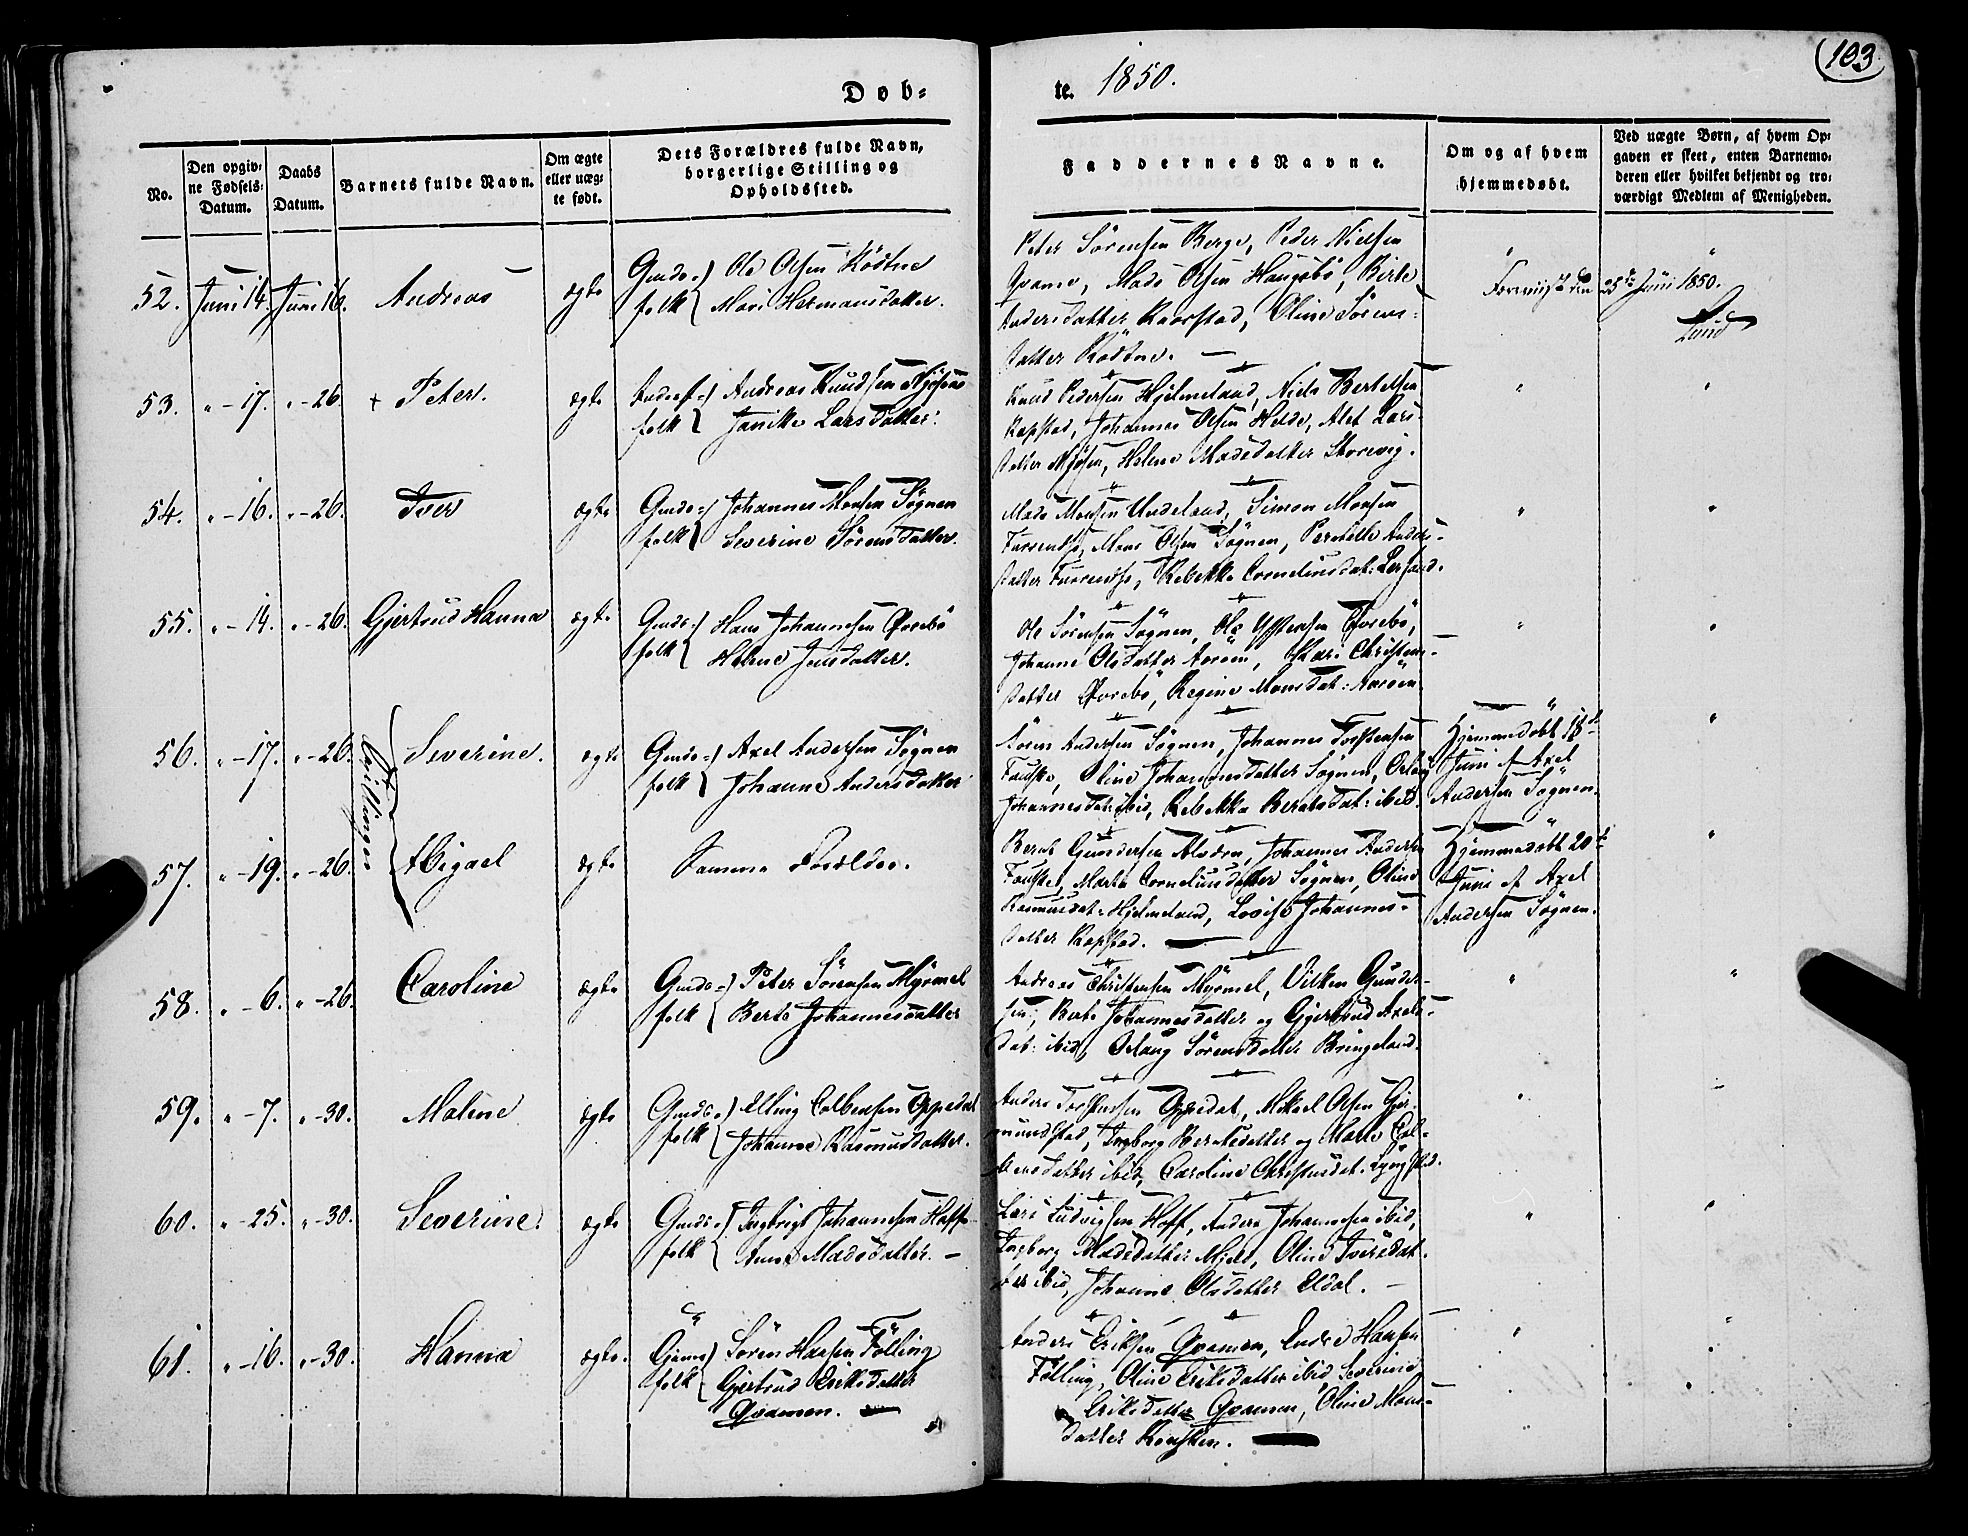 103
Døb-
te. 1850.
No.
Den opgiv-
ne Fødsels-
Datum.
Daabs
Datum.
Barnets fulde Navn.
Om ægte
eller uæg-
te født.
Dets Forældres fulde Navn,
borgerlige Stilling og
Opholdssted.
Faddernes Navne.
Om og af hvem
hjemmedøbt.
Ved uægte Børn, af hvem Op-
gaven er skeet, enten Barnemo-
deren eller hvilket bekjendt og tro-
værdigt Medlem af Menigheden.
52. Juni 14. Juni 16. Andreas ægte Gmds- folk Ole Olsen Rödtne
Mari Hermansdatter.
Peter Sörensen Berge, Peder Nielsen
Qvame, Mads Olsen Haugsbö, Birte
Andersdatter Raarstad, Oline Sörens-
datter Rödtne.
" "
den 25de Juni 1850.
Lund
53. " - 17. " - 26. + Peter. ægte folk Andreas Knudsen Njösen
Janikke Larsdatter.
Knud Pedersen Hjelmeland, Niels Bertelsen
Kapstad, Johannes Olsen Helde, Alet Lars-
datter Njösen, Helene Madsdatter Storevig.
" "
54. " - 16. " - 26. Iver ægte Gmds- folk Johannes Monsen Sögnen
Severine Sörensdatter.
Mads Monsen Undeland, Simon Monsen
Mons Olsen Sögnen, Pernille Anders-
datter Rebekka Corneliusdat:
" "
55. " - 14. " - 26. Gjertrud Hanna ægte Gmds- folk Hans Johannesen Qvrebö
Helene Jensdatter.
Ole Sörensen Sögnen, Ole
Johanne Olsdatter Kari Christens-
datter Regine Monsdat:
" "
56. " - 17. " - 26. Tvillinger Severine. ægte Gmds- folk Axel Andersen Sögnen
Johanne Andersdatter
Sören Andersen Sögnen, Johannes Torstensen
Oline Johannesdatter Sögnen,
Johannesdat: ibid, Rebekka Berntsdat: ibid.
Hjemmedöbt 18de
Juni af Axel
Andersen Sögnen.
"
57. " - 19. " - 26. Abigael ægte Samme Forældre.
Bernt Gundersen Johannes Andersen
Marte Corneliusdatter Sögnen, Oline
Rasmusdat: Hjelmeland, Lovise Johannes-
datter Kapstad.
Hjemmedöbt 20de
Juni af Axel
Andersen Sögnen.
"
58. " - 6. " - 26. Caroline ægte Gmds- folk Peter Sörensen Myrmel
Berte Johannesdatter
Andreas Christensen Myrmel, Vilken Gunder-
sen, Berte Johannesdatter og Gjertrud Axels-
dat: ibid, Orlaug Sörensdatter Bringeland.
" "
59. " - 7. " - 30. Malene ægte Gmds- folk Elling Colbensen Oppedal
Johanne Rasmusdatter.
Anders Torstensen Oppedal, Mikael Olsen Gjer-
mundstad, Ingborg Berntsdatter og Marte Col-
bensdatter ibid, Caroline Christensdat.
" "
60. " - 25. " - 30. Severine. ægte Gmds- folk Ingbrigt Johannesen Hoff
Anne Madsdatter.
Lars Ludvigsen Hoff, Anders Johannesen ibid,
Ingborg Madsdatter Mjell, Oline Iversdat-
ter ibid, Johanne Olsdatter Eldal.
" "
61. " - 16. " - 30. Hanna ægte. folk Sören Hansen Fölling
Gjertrud Eriksdatter
Qvamen.
Anders Eriksen Qvamen, Endre Hansen
Fölling, Oline Eriksdatter ibid, Severine
Eriksdatter Qvamen, Oline Mons-
datter
" "